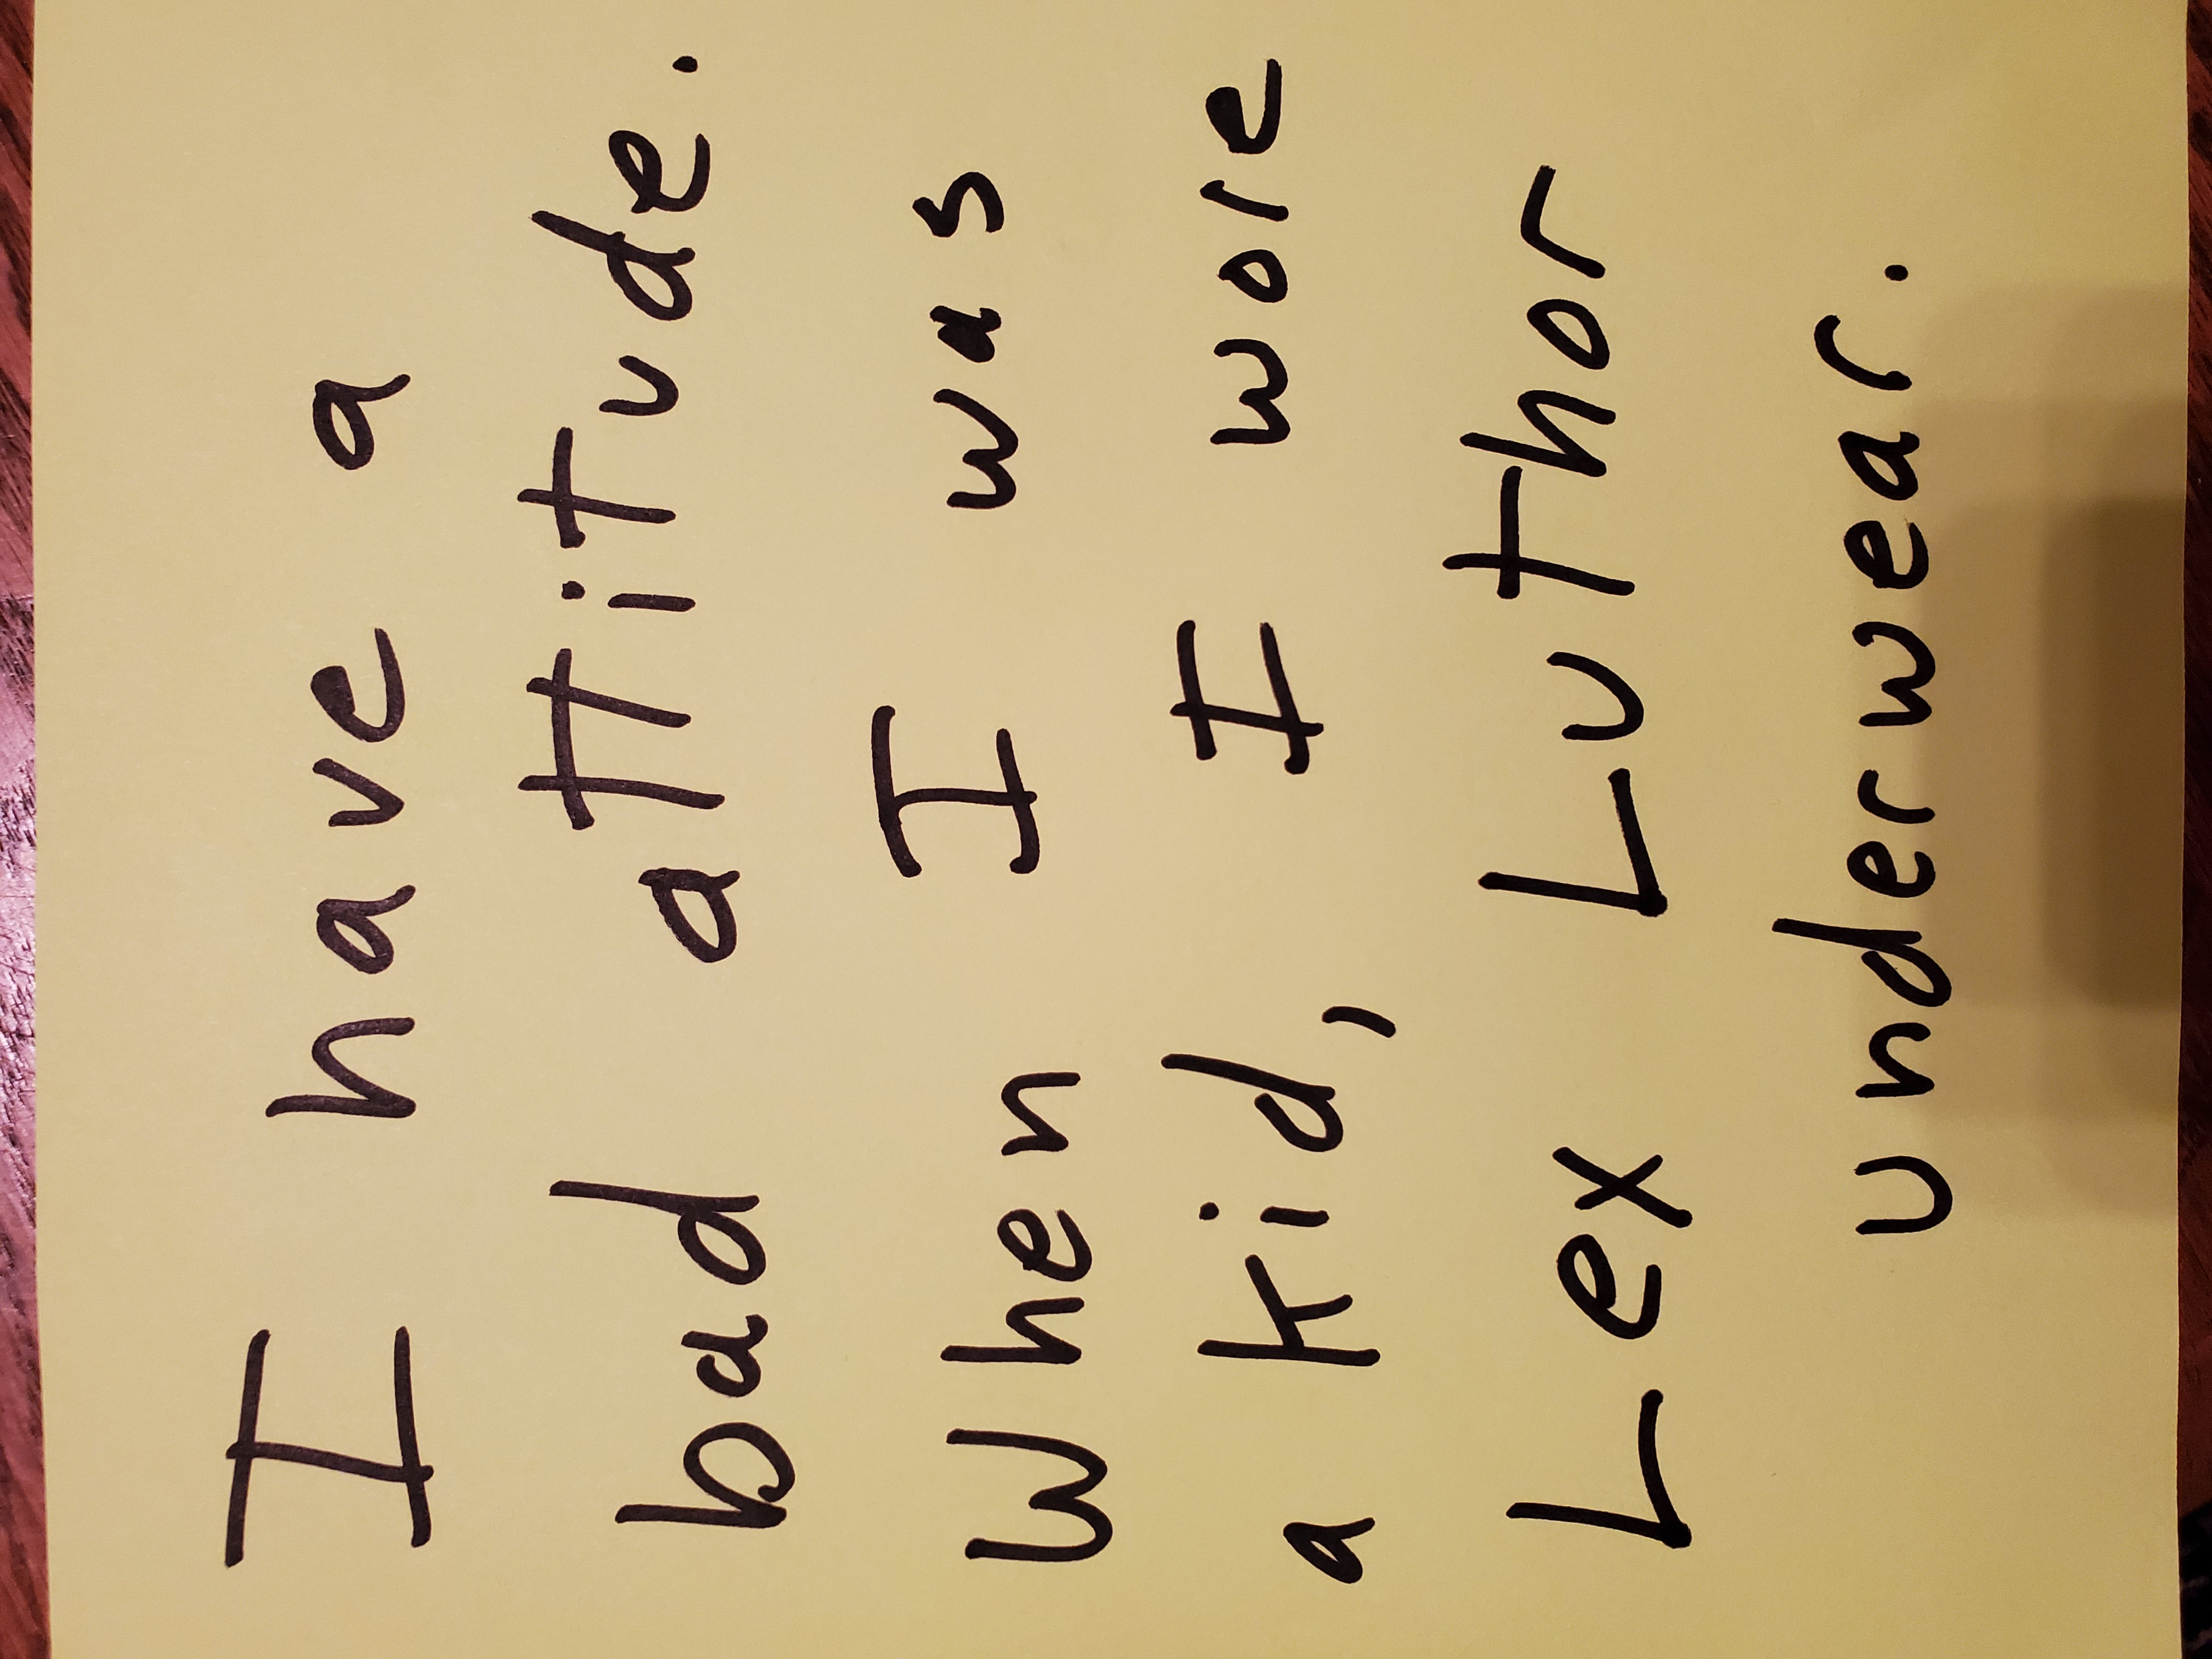 I have a
bad attitude.
When I was
a kid, I wore
Lex Luthor
underwear.